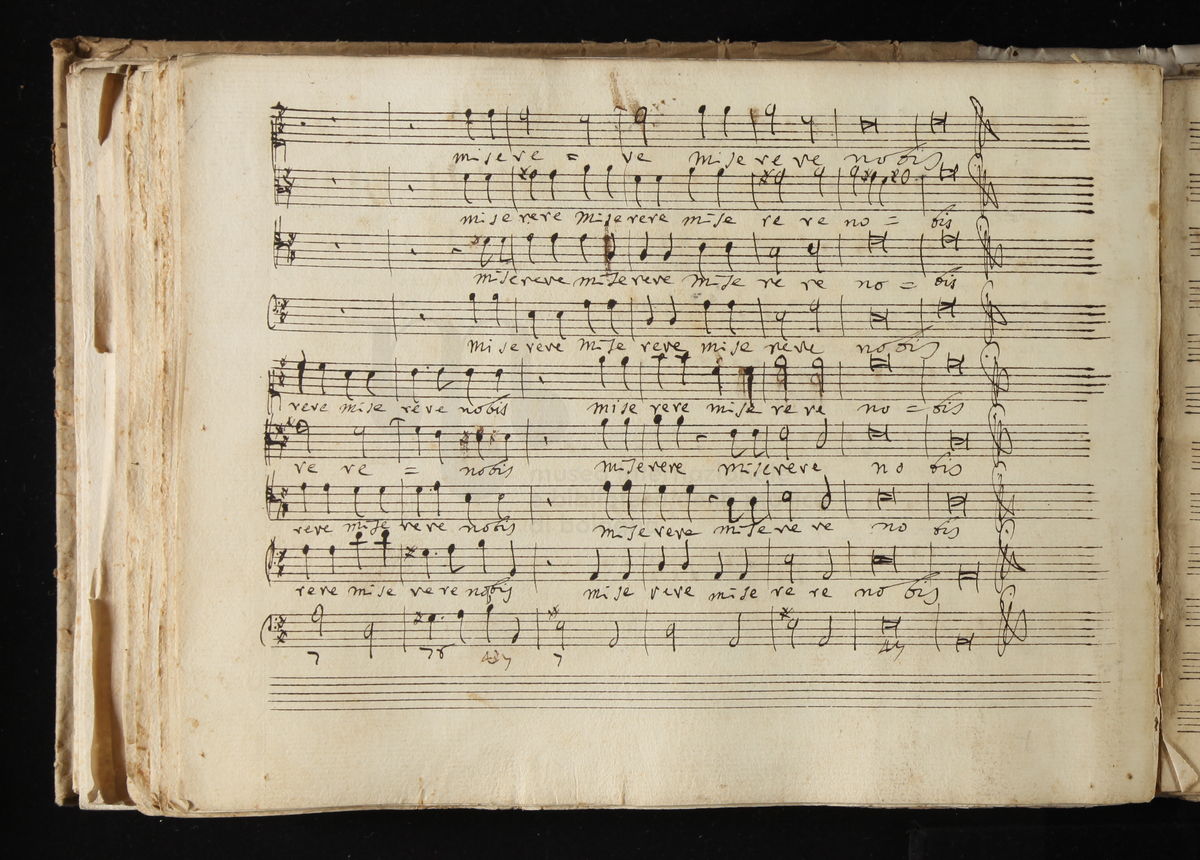 misere = re misere re nobis
miserere miserere mise re re no = bis
miserere miserere mise re re no = bis
miserere mise rere mise rere nobis
rere mise rere nobis mise rere mise re re no = bis
re re = nobis miserere miserere no bis
rere mise rere nobis miserere misere re no bis
rere mise rere nobis mise rere mise re re no bis
7 76 7